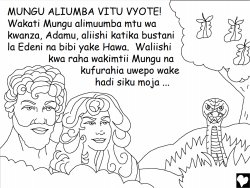 MUNGU ALIUMBA VITU VYOTE!
Wakati Mungu alimuumba mtu wa
kwanza, Adamu, aliishi katika bustani
la Edeni na bibi yake Hawa. Waliishi
kwa raha wakimtii Mungu na
kufurahia uwepo wake
hadi siku moja ...